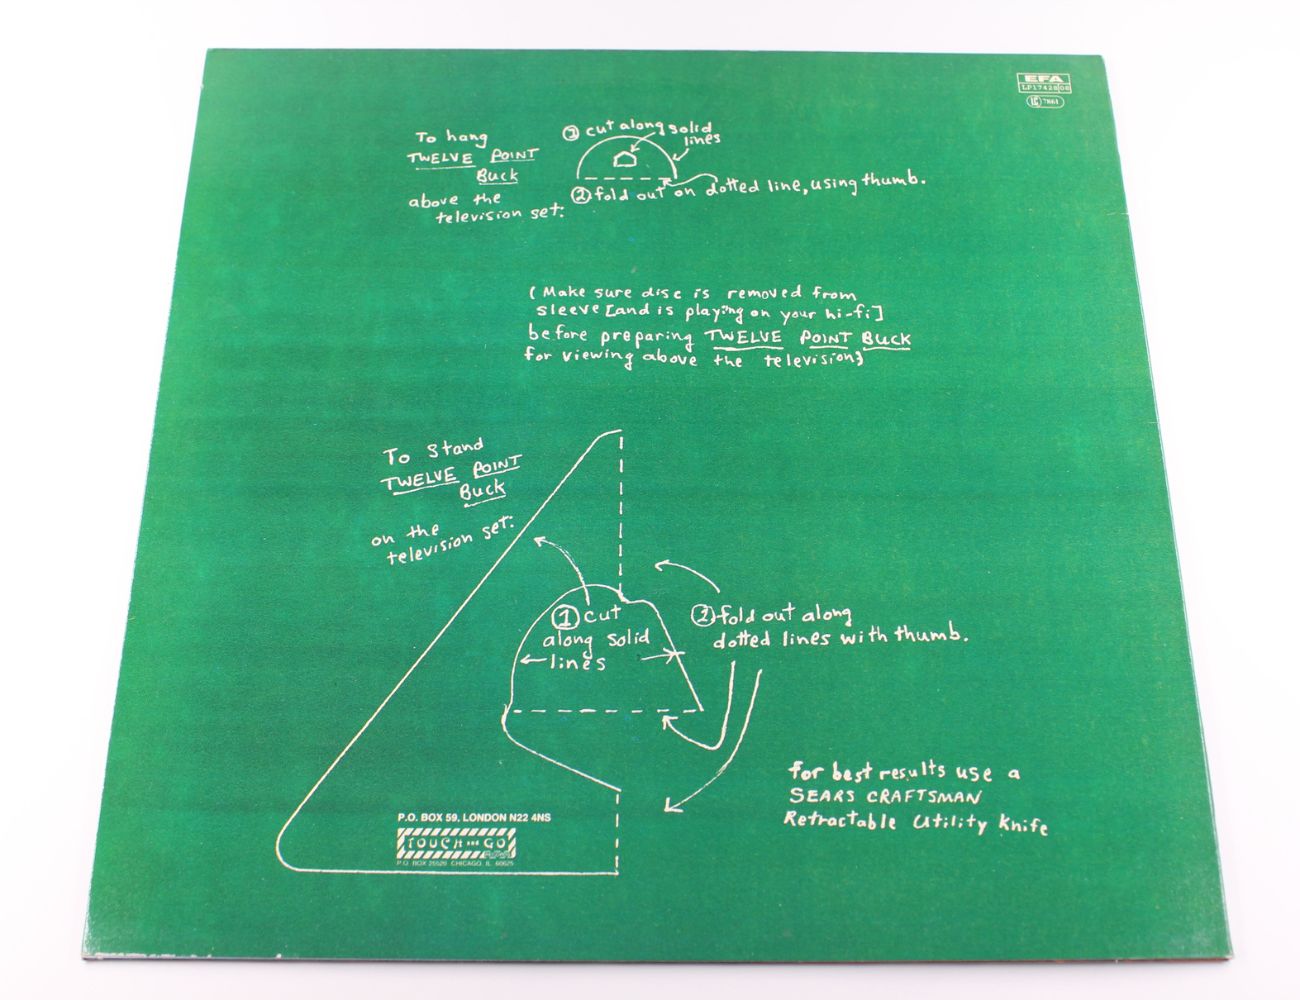 EFA
LP17428 08
LC 7861
To hang
TWELVE POINT
Buck
above the
television set:
1 cut along solid
lines
2 fold out on dotted line, using thumb.
(Make sure disc is removed from
sleeve [and is playing on your hi-fi]
before preparing TWELVE POINT BUCK
for viewing above the television)
To Stand
TWELVE POINT
Buck
on the
television set:
1 cut
along solid
lines
2 fold out along
dotted lines with thumb.
for best results use a
SEARS CRAFTSMAN
Retractable Utility Knife
P.O. BOX 59, LONDON N22 4NS
TOUCH AND GO
P.O. BOX 25520 CHICAGO, IL 60625